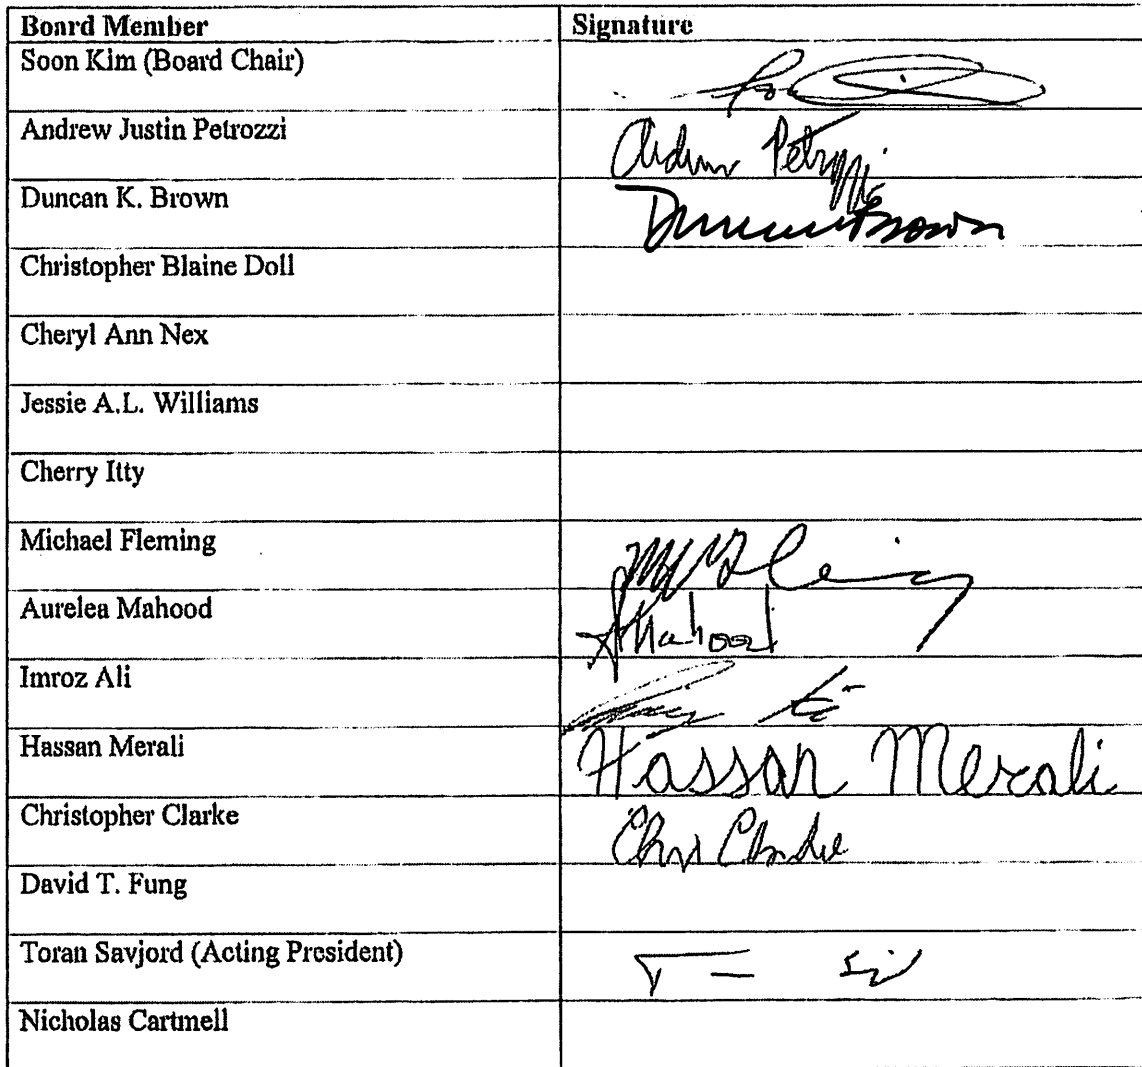 Board Member Signature
Soon Kim (Board Chair)
Andrew Justin Petrozzi
Duncan K. Brown Duncan Brown
Christopher Blaine Doll
Cheryl Ann Nex
Jessie A.L. Williams
Cherry Itty
Michael Fleming
Aurelea Mahood AMahood
Imroz Ali
Hassan Merali Hassan Merali
Christopher Clarke Chris Clarke
David T. Fung
Toran Savjord (Acting President)
Nicholas Cartmell